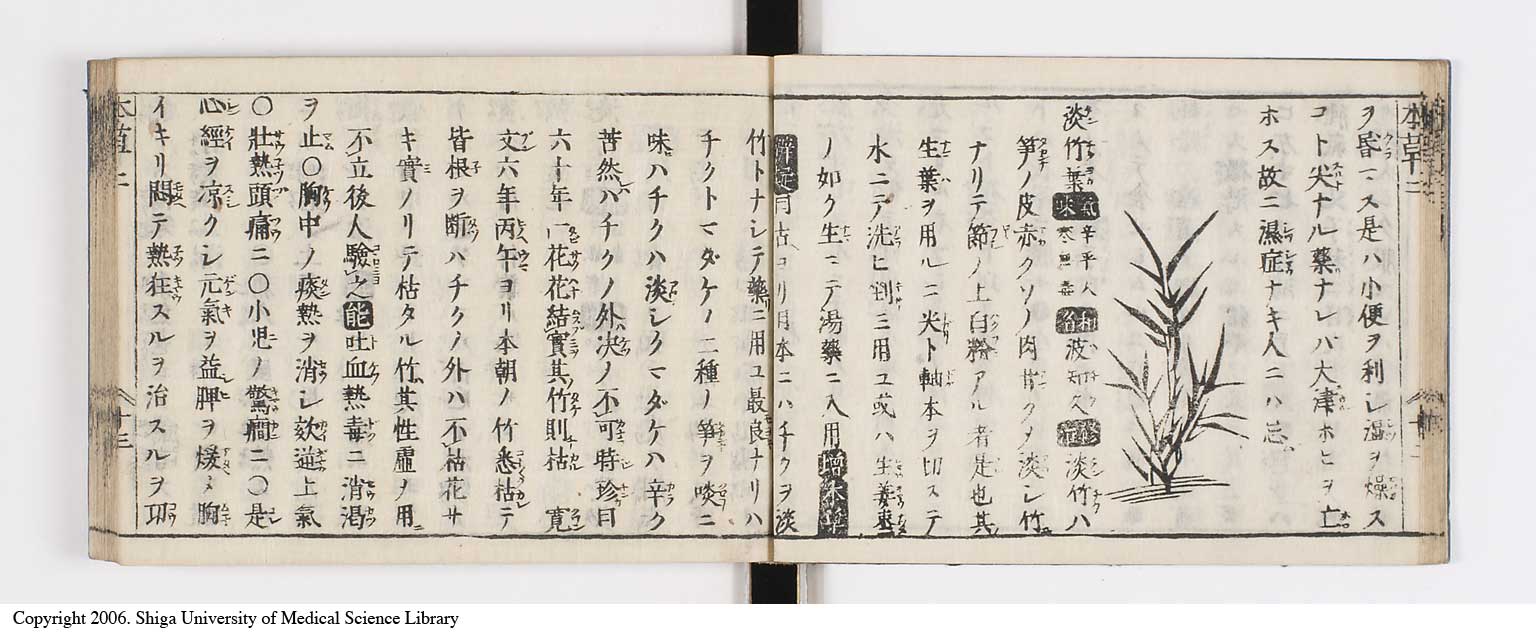 本草二
ヲ昏マス是ハ小便ヲ利シ湿ヲ燥ス
コト尖ナル藥ナレバ大津ホヒヲ亡
ホス故ニ濕症ナキ人ニハ忌
淡竹葉 気味 辛平 寒無毒 和名 波知久 修治 淡竹ハ
笋ノ皮赤クソノ肉甘ク淡シ竹
ナリテ節ノ上白粉アル者是也其
生葉ヲ用ルニ尖ト軸本ヲ切ステ
水ニテ洗ヒ剉ミ用ユ或ハ生姜棗
ノ如ク生ニテ湯藥ニ入用
古ヨリ日本ニハチクヲ淡
竹トナシテ藥ニ用ユ最良ナリハ
チクトマダケノ二種ノ笋ヲ啖ニ
味ハチクハ淡シクマダケハ辛ク
苦然ハチクノ外决ノ不可時珍曰
六十年一花花結實其竹則枯 寛
文六年丙午ヨリ本朝ノ竹悉枯テ
皆根ヲ断ハチクノ外ハ不枯花サ
キ實ノリテ枯タル竹其性虚ノ用
不立後人驗之 能 吐血熱毒ニ消渇
ヲ止〇胸中ノ痰熱ヲ消シ欬逆上氣
〇壯熱頭痛ニ〇小児ノ驚癇ニ〇是
心經ヲ凉クシ元氣ヲ益脾ヲ煖メ胸
イキリ悶テ熱狂スルヲ治スルヲ功
本草二
十三
Copyright 2006. Shiga University of Medical Science Library